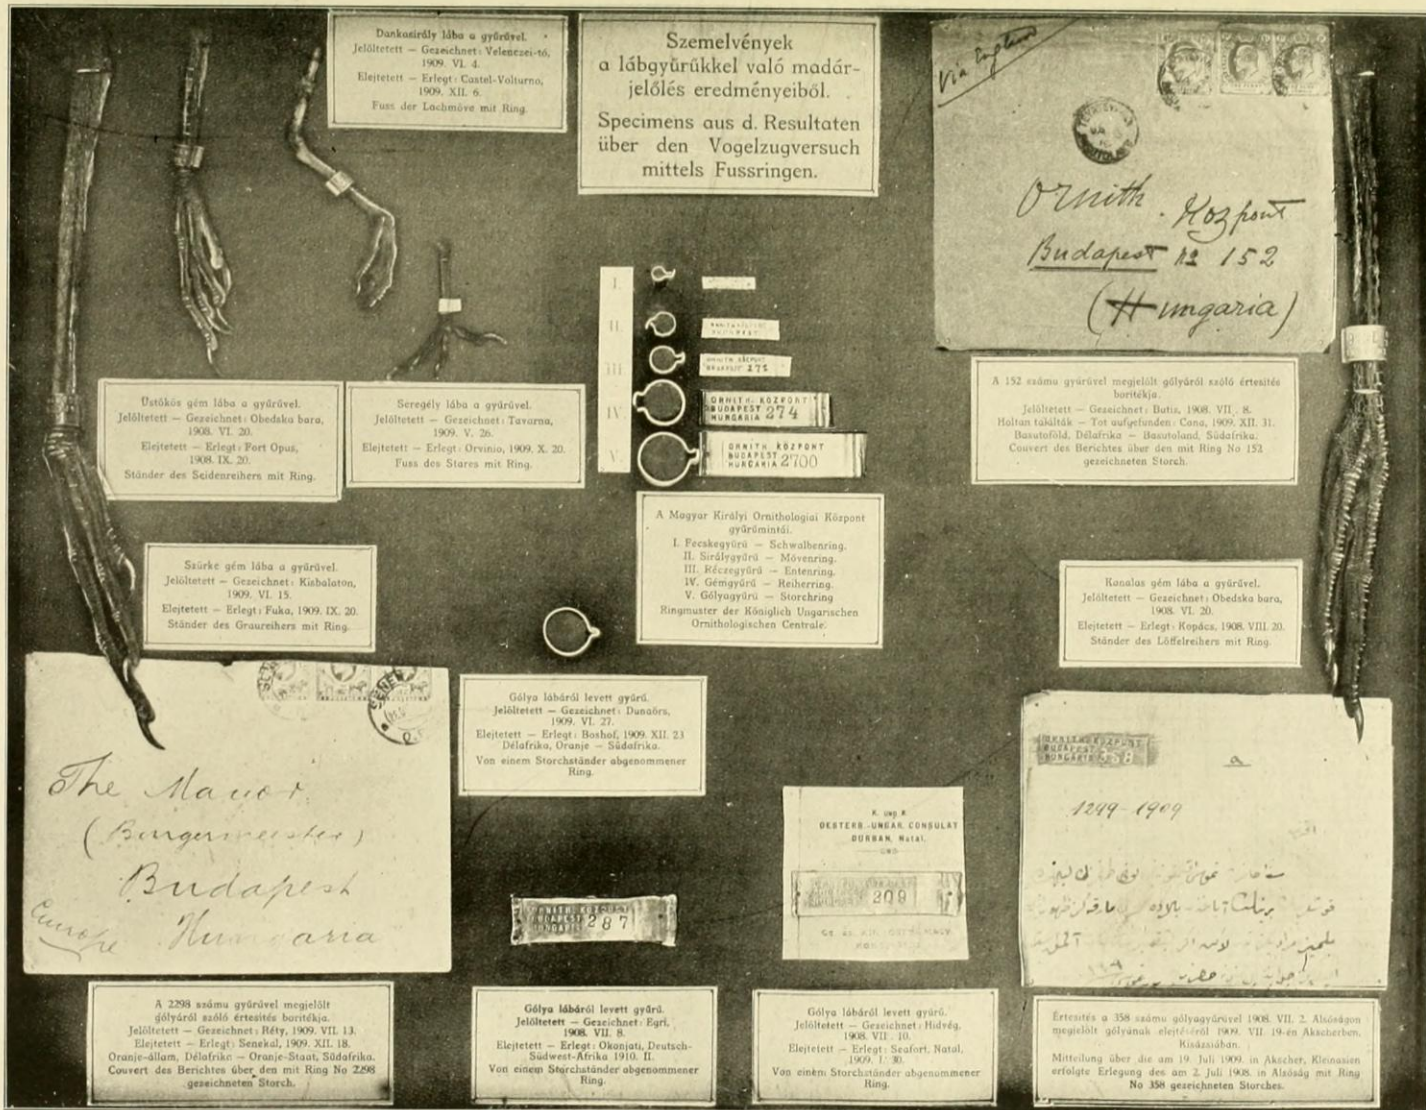 Dankasirály lába a gyűrűvel.
Jelöltetett — Gezeichnet: Velenczei-tó,
1909. VI. 4.
Elejtetett — Erlegt: Castel-Volturno,
1909. XII. 6.
Fuss der Lachmöve mit Ring.
Szemelvények
a lábgyűrűkkel való madár-
jelölés eredményeiből.
Specimens aus d. Resultaten
über den Vogelzugversuch
mittels Fussringen.
Via England
Ornith. Központ
Budapest No 152
(Hungaria)
I.
II.
III.
IV.
V.
ORNITH. KÖZPONT
BUDAPEST 275
ORNITH. KÖZPONT
BUDAPEST
HUNGARIA 274
ORNITH. KÖZPONT
BUDAPEST
HUNGARIA 2700
Üstökös gém lába a gyűrűvel.
Jelöltetett — Gezeichnet: Obedska bara,
1908. VI. 20.
Elejtetett — Erlegt: Fort Opus,
1908. IX. 20.
Ständer des Seidenreihers mit Ring.
Seregély lába a gyűrűvel.
Jelöltetett — Gezeichnet: Tavarna,
1909. V. 26.
Elejtetett — Erlegt: Orvinio, 1909. X. 20.
Fuss des Stares mit Ring.
A 152 számu gyűrűvel megjelölt gólyáról szóló értesítés
boritékja.
Jelöltetett — Gezeichnet: Batiz, 1908. VII. 8.
Holtan találták — Tot aufgefunden: Cana, 1909. XII. 31.
Basutoföld, Délafrika — Basutoland, Südafrika.
Couvert des Berichtes über den mit Ring No 152
gezeichneten Storch.
A Magyar Királyi Ornithologiai Központ
gyűrűmintái.
I. Fecskegyűrű — Schwalbenring.
II. Sirálygyűrű — Mövenring.
III. Réczegyűrű — Entenring.
IV. Gémgyűrű — Reiherring.
V. Gólyagyűrű — Storchring
Ringmuster der Königlich Ungarischen
Ornithologischen Centrale.
Szürke gém lába a gyűrűvel.
Jelöltetett — Gezeichnet: Kisbalaton,
1909. VI. 15.
Elejtetett — Erlegt: Fuka, 1909. IX. 20.
Ständer des Graureihers mit Ring.
Kanalas gém lába a gyűrűvel.
Jelöltetett — Gezeichnet: Obedska bara,
1908. VI. 20.
Elejtetett — Erlegt: Kopács, 1908. VIII. 20.
Ständer des Löffelreihers mit Ring.
Gólya lábáról levett gyűrű.
Jelöltetett — Gezeichnet: Dunaörs,
1909. VI. 27.
Elejtetett — Erlegt: Boshof, 1909. XII. 23
Délafrika, Oranje — Südafrika.
Von einem Storchständer abgenommener
Ring.
The Mayor
(Bürgermeister)
Budapest
Hungaria
Europe
ORNITH. KÖZPONT
BUDAPEST
HUNGARIA 287
K. und K.
OESTERR.-UNGAR. CONSULAT
DURBAN, Natal.
209
ORNITH. KÖZPONT
BUDAPEST
HUNGARIA 358
a
1299-1909
A 2298 számu gyűrűvel megjelölt
gólyáról szóló értesítés boritékja.
Jelöltetett — Gezeichnet: Réty, 1909. VII. 13.
Elejtetett — Erlegt: Senekal, 1909. XII. 18.
Oranje-állam, Délafrika — Oranje-Staat, Südafrika.
Couvert des Berichtes über den mit Ring No 2298
gezeichneten Storch.
Gólya lábáról levett gyűrű.
Jelöltetett — Gezeichnet: Egri,
1908. VII. 8.
Elejtetett — Erlegt: Okonjati, Deutsch-
Südwest-Afrika 1910. II.
Von einem Storchständer abgenommener
Ring.
Gólya lábáról levett gyűrű.
Jelöltetett — Gezeichnet: Hidvég,
1908. VII. 10.
Elejtetett — Erlegt: Seafort, Natal,
1909. I. 30.
Von einem Storchständer abgenommener
Ring.
Értesítés a 358 számu gólyagyűrűvel 1908. VII. 2. Alsóságon
megjelölt gólyának elejtéséről 1909. VII. 19-én Akscherben,
Kisázsiában.
Mitteilung über die am 19. Juli 1909. in Akscher, Kleinasien
erfolgte Erlegung des am 2. Juli 1908. in Alsóság mit Ring
No 358 gezeichneten Storches.